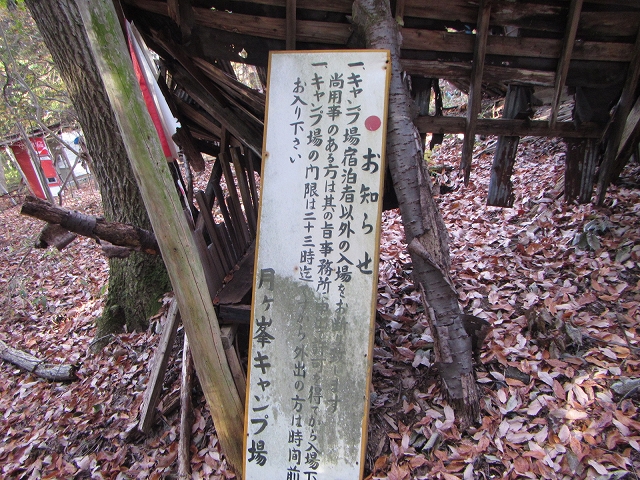 お知らせ
一キャンプ場宿泊者以外の入場をお断
尚用事のある方は其の旨事務所
得てから入場下
一キャンプ場の門限は二十三時迄
から外出の方は時間前
お入り下さい
月ヶ峯キャンプ場